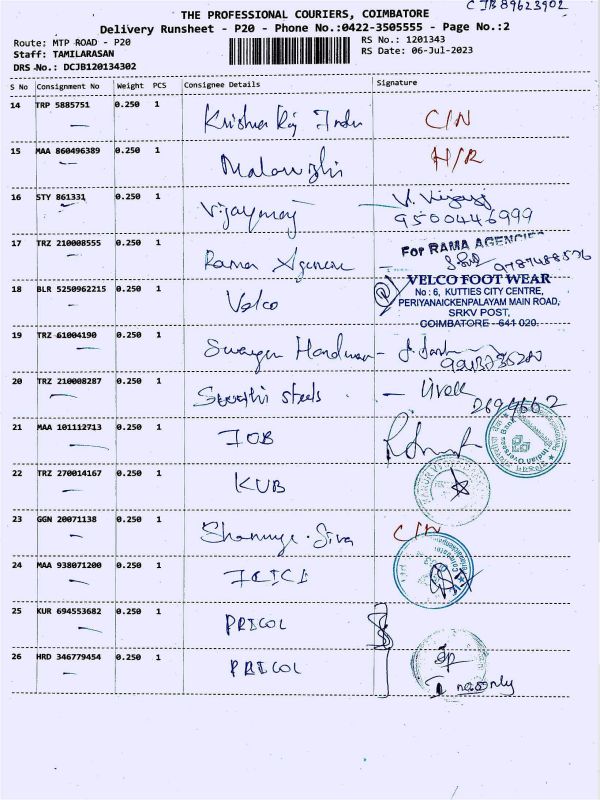 CJB89623902
THE PROFESSIONAL COURIERS, COIMBATORE
Delivery Runsheet - P20 - Phone No.:0422-3505555 - Page No.:2
Route: MTP ROAD - P20
Staff: TAMILARASAN
DRS No.: DCJB120134302
RS No.: 1201343
RS Date: 06-Jul-2023
S No Consignment No Weight PCS Consignee Details Signature
14 TRP 5885751 0.250 1 C/N
15 MAA 860496389 0.250 1 H/R
16 STY 861331 0.250 1 Vijayaraj
9500446999
17 TRZ 210008555 0.250 1 Rama Agencies For RAMA AGENCIES
18 BLR 5250962215 0.250 1 Velco VELCO FOOT WEAR
No : 6, KUTTIES CITY CENTRE,
PERIYANAICKENPALAYAM MAIN ROAD,
SRKV POST,
COIMBATORE - 641 020.
19 TRZ 61004190 0.250 1
20 TRZ 210008287 0.250 1 Swathi steels - Vivek
2694662
21 MAA 101112713 0.250 1 IOB
Indian Overseas Bank
22 TRZ 270014167 0.250 1 KVB
23 GGN 20071138 0.250 1 C/N
24 MAA 938071200 0.250 1 ICICI
25 KUR 694553682 0.250 1 PRICOL
26 HRD 346779454 0.250 1 PRICOL